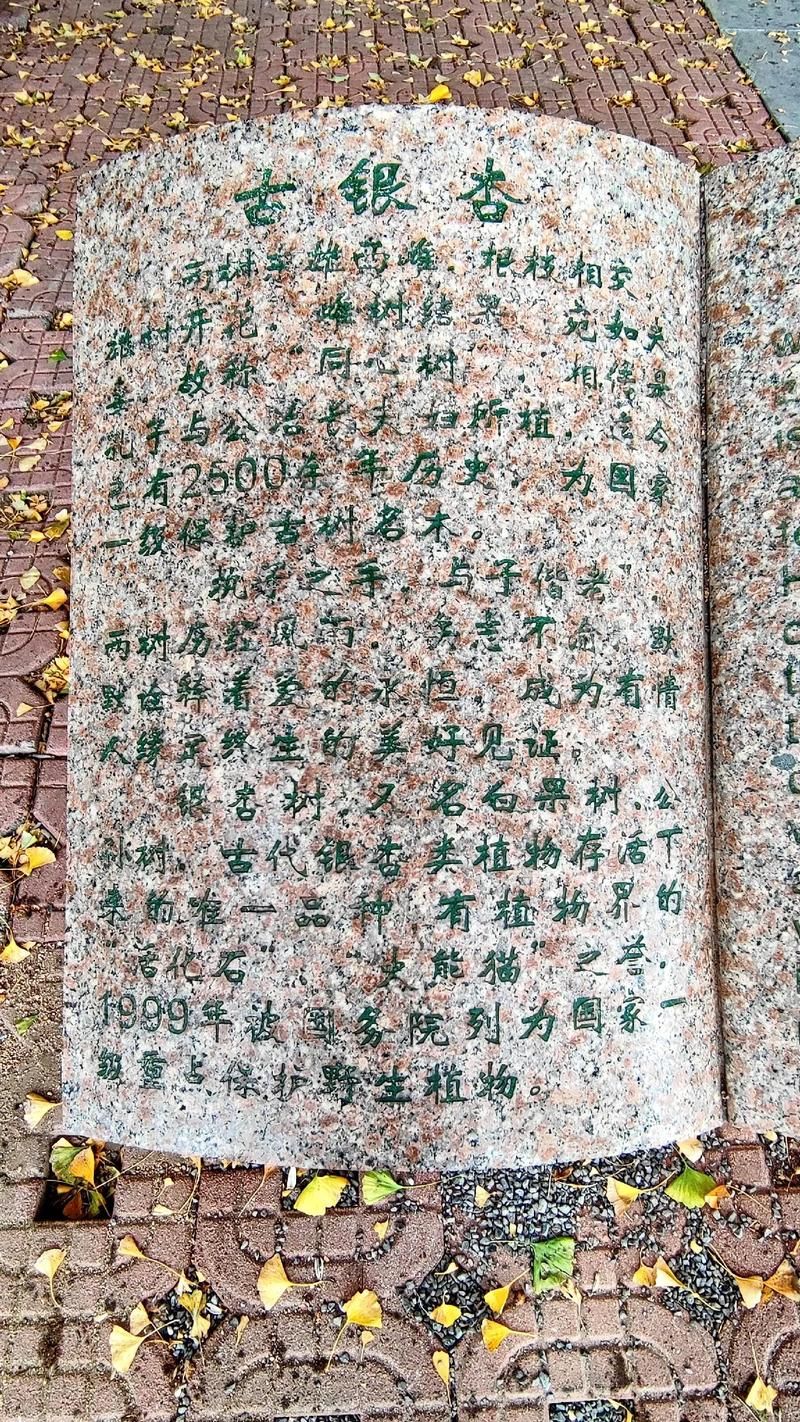 古银杏
两树东雄西雌，根枝相交
雄树开花，雌树结果，宛如夫
妻，故称“同心树”。相传是
孔子与公冶长夫妇所植，迄今
已有2500余年历史，为国家
一级保护古树名木。
“执子之手，与子偕老”，
两树历经风雨，矢志不渝，默
默诠释着爱的永恒，成为有情
人缘定终生的美好见证。
银杏树，又名白果树、公
孙树。古代银杏类植物存活下
来的唯一品种，有植物界的
“活化石”、“大熊猫”之誉。
1999年被国务院列为国家一
级重点保护野生植物。